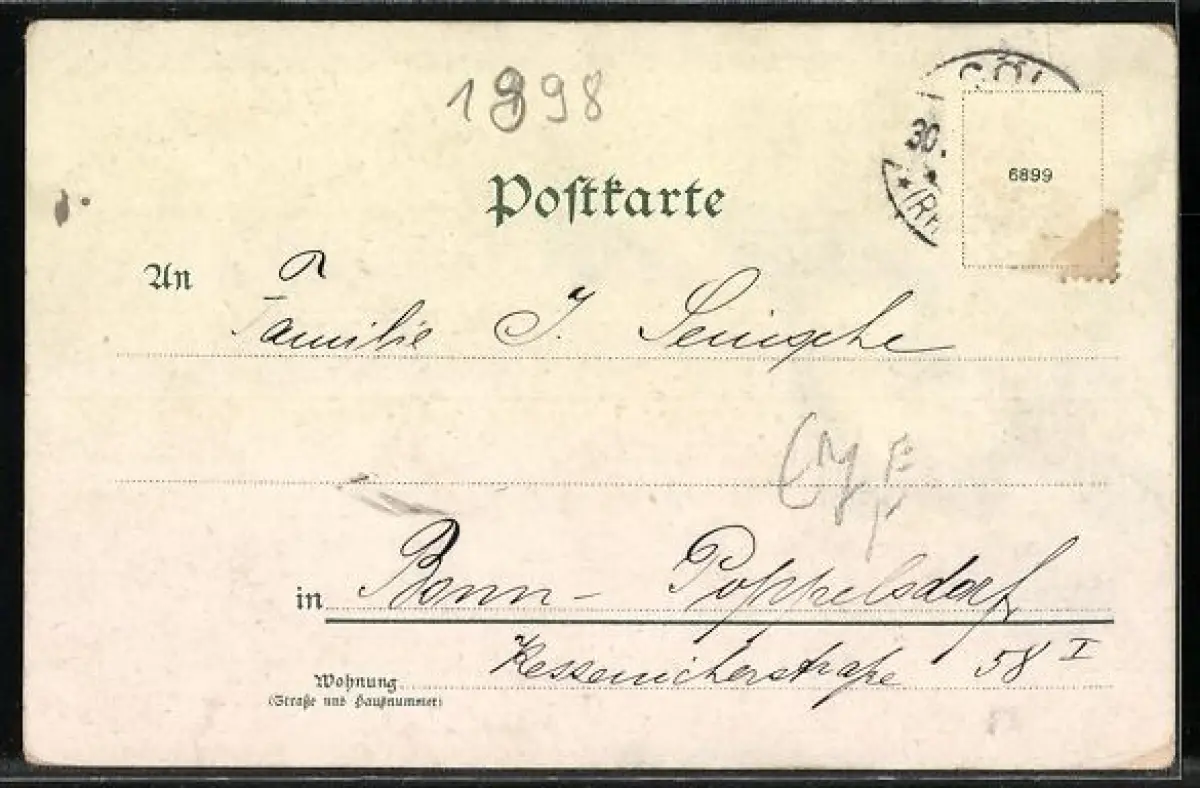 1898
CÖL
30.
(Rh
6899
Postkarte
An
Familie J.
in Bonn - Poppelsdorf
Kessenicherstraße 58 I
Wohnung
(Straße und Hausnummer)